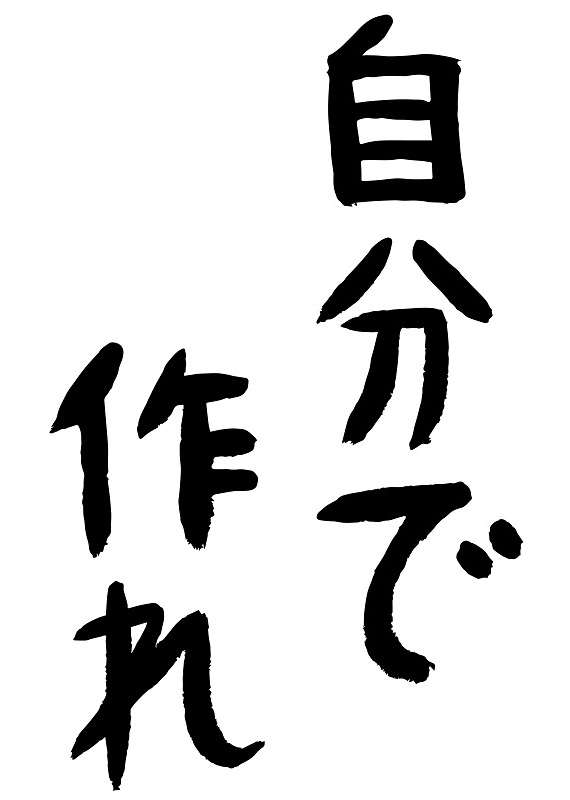 自分で
作れ